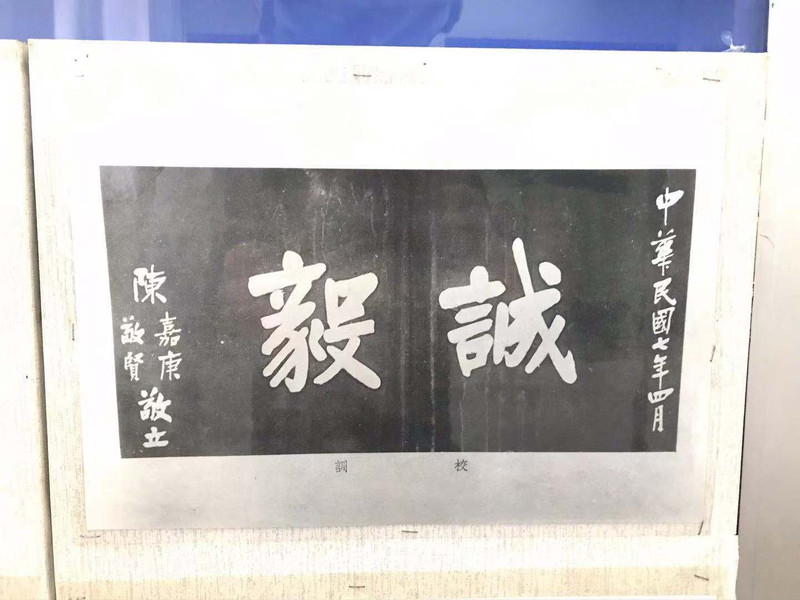 中華民國七年四月
誠毅
陳嘉庚
敬賢
敬立
校訓